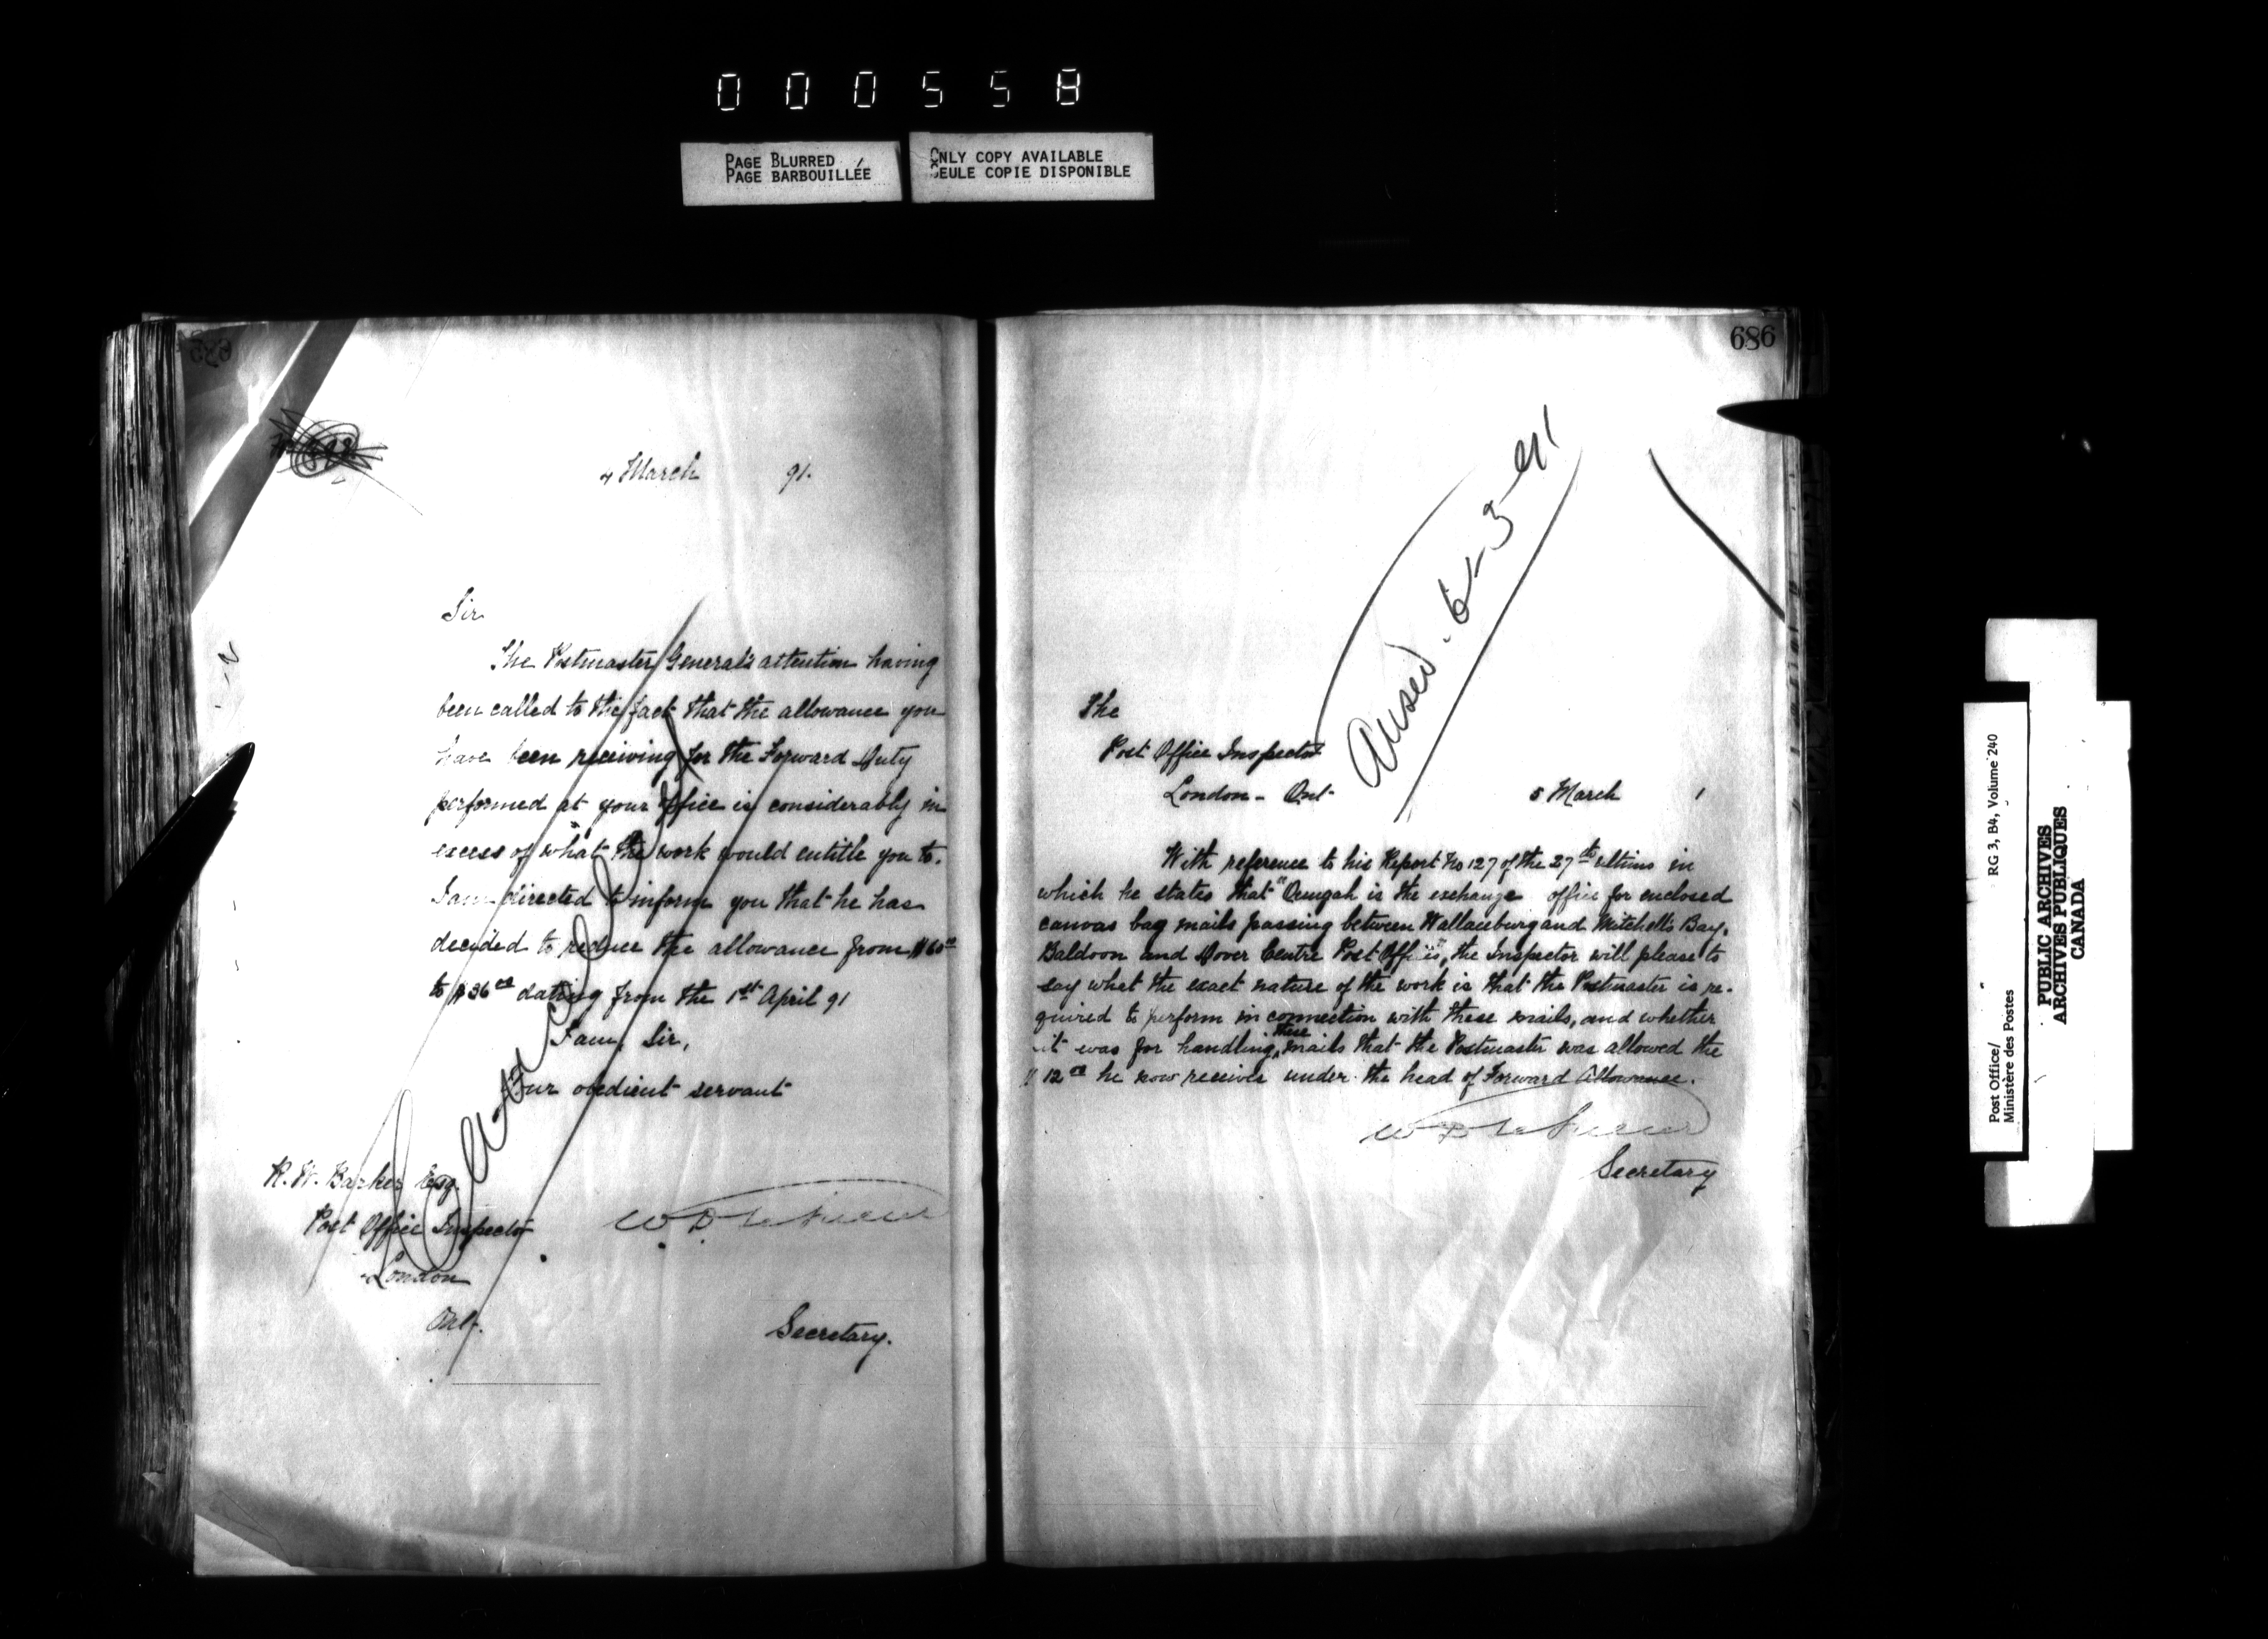 000558
PAGE BLURRED
PAGE BARBOUILLÉE
ONLY COPY AVAILABLE
SEULE COPIE DISPONIBLE
4 March 91.
Sir
The Postmaster General's attention having
been called to the fact that the allowance you
have been receiving for the Forward Duty
performed at your Office is considerably in
excess of what the work would entitle you to.
I am directed to inform you that he has
decided to reduce the allowance from $60 00
to $36 00 dating from the 1st April 91
I am, Sir,
Your obedient servant
Cancelled
R. W. Barker Esq.
Post Office Inspector
London
Ont.
W D LeSueur
Secretary.
686
Ansed. 6-3-91
The
Post Office Inspector
London - Ont
5 March 1
With reference to his Report No 127 of the 27th ultimo in
which he states that "Oungah is the exchange office for enclosed
canvas bag mails passing between Wallaceburg and Mitchell's Bay,
Baldoon and Dover Centre Post Offices", the Inspector will please to
say what the exact nature of the work is that the Postmaster is re-
quired to perform in connection with these mails, and whether
it was for handling these mails that the Postmaster was allowed the
$12 00 he now receives under the head of Forward Allowance.
W D LeSueur
Secretary
Post Office/ RG 3, B4, Volume 240
Ministère des Postes
PUBLIC ARCHIVES
ARCHIVES PUBLIQUES
CANADA